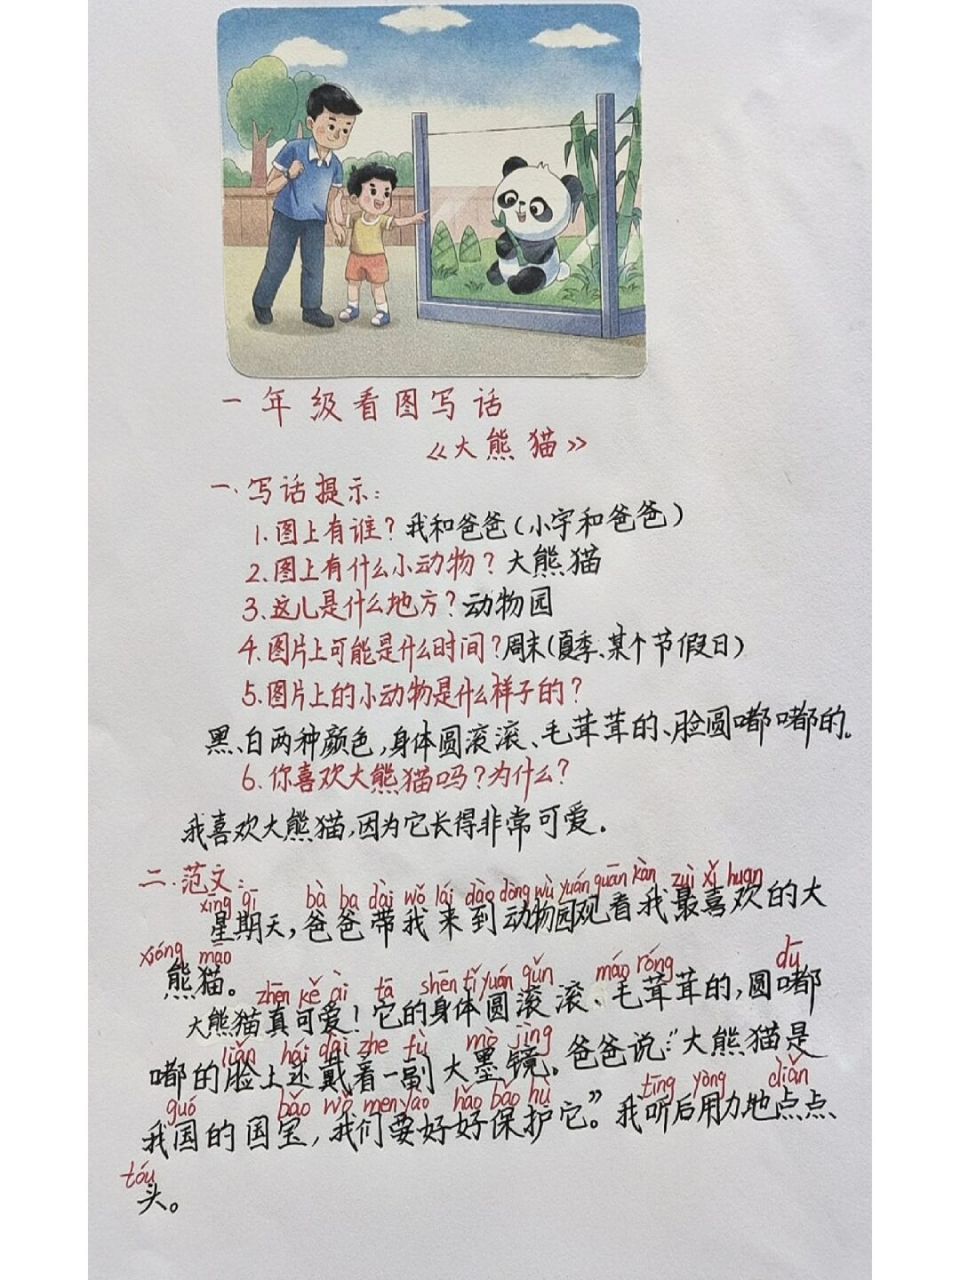 一年级看图写话
《大熊猫》
一、写话提示:
1.图上有谁?我和爸爸(小宇和爸爸)
2.图上有什么小动物?大熊猫
3.这儿是什么地方?动物园
4.图片上可能是什么时间?周末(夏季、某个节假日)
5.图片上的小动物是什么样子的?
黑、白两种颜色,身体圆滚滚、毛茸茸的、脸圆嘟嘟的。
6.你喜欢大熊猫吗?为什么?
我喜欢大熊猫,因为它长得非常可爱.
二.范文:
xīng qī bà ba dài wǒ lái dào dòng wù yuán guān kàn zuì xǐ huan
星期天,爸爸带我来到动物园观看我最喜欢的大
xióng māo
熊猫。
zhēn kě ài tā shēn tǐ yuán gǔn máo róng dū
大熊猫真可爱!它的身体圆滚滚、毛茸茸的,圆嘟
liǎn hái dài zhe fù mò jìng
嘟的脸上还戴着一副大墨镜。爸爸说:“大熊猫是
guó bǎo wǒ men yao hǎo bǎo hù tīng yòng diǎn
我国的国宝,我们要好好保护它。”我听后用力地点点
tóu
头。